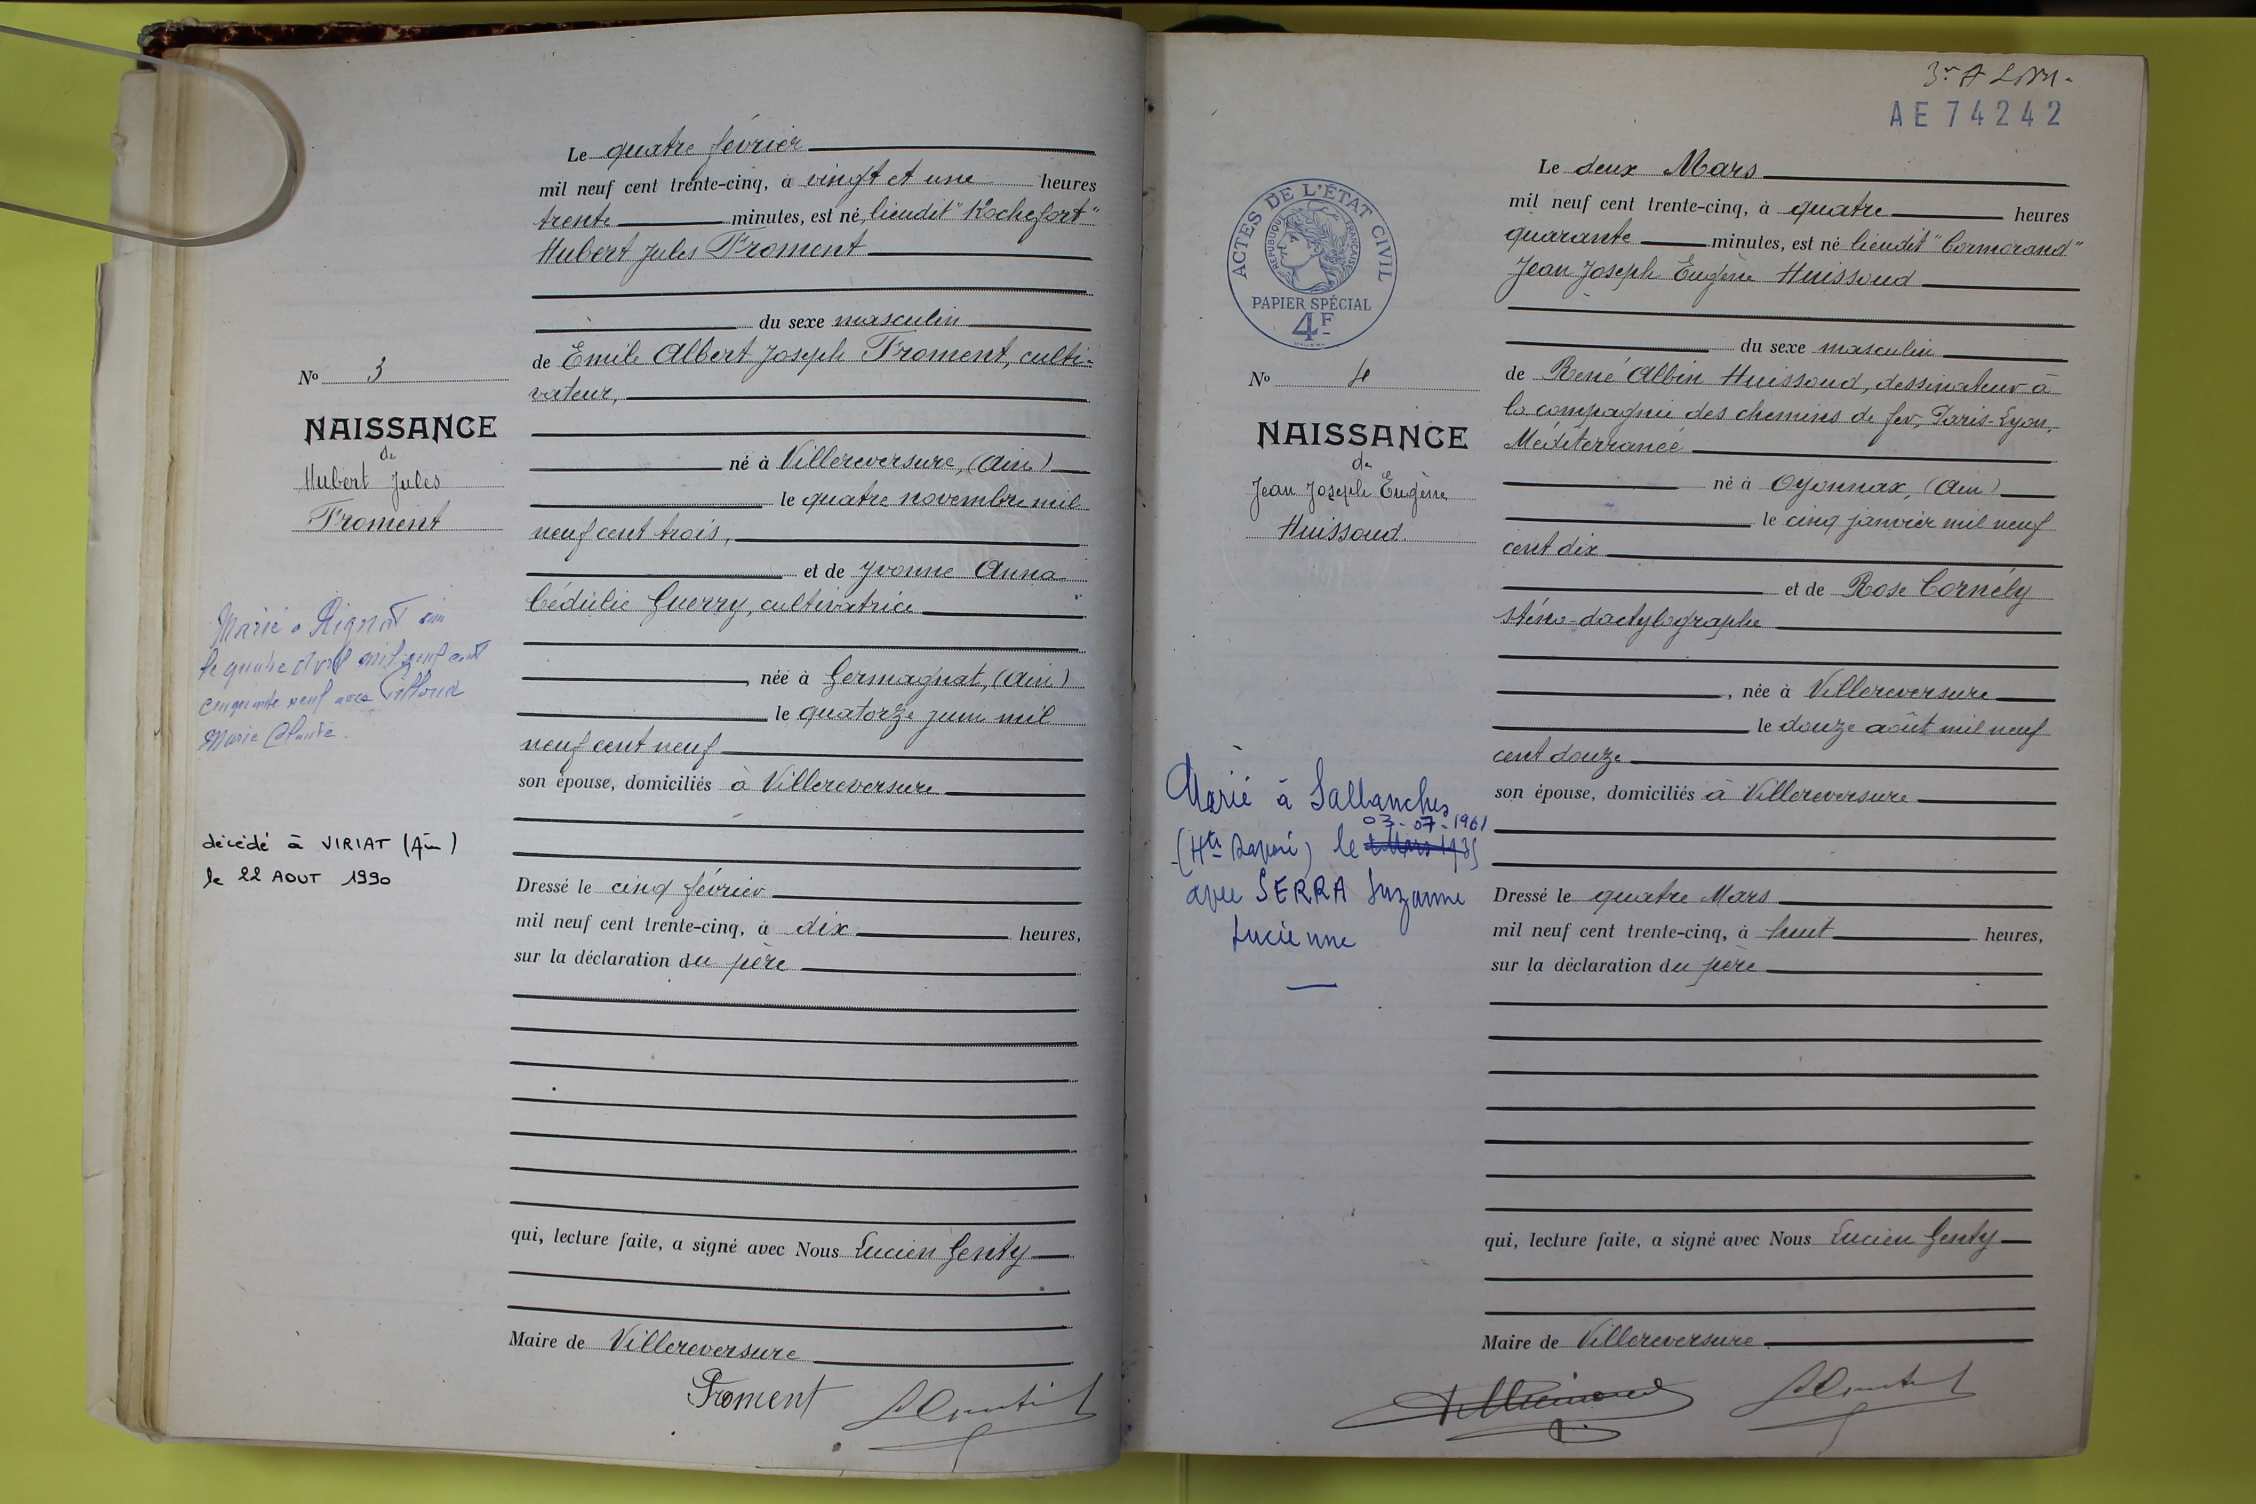 Le quatre février
mil neuf cent trente-cinq, à vingt et une heures
trente minutes, est né, lieudit "Rochefort"
Hubert Jules Froment
du sexe masculin
de Emile Albert Joseph Froment, culti-
vateur,
né à Villereversure, (Ain)
le quatre novembre mil
neuf cent trois,
et de Yvonne Anna
Cédulie Guerry, cultivatrice
, née à Germagnat, (Ain)
le quatorze juin mil
neuf cent neuf
son épouse, domiciliés à Villereversure
Dressé le cinq février
mil neuf cent trente-cinq, à dix heures,
sur la déclaration du père
qui, lecture faite, a signé avec Nous Lucien Genty
Maire de Villereversure
Froment
No 3
NAISSANCE
de
Hubert Jules
Froment
Marié à Rignat Ain
le quatre Avril mil neuf cent
cinquante neuf avec
Marie
décédé à VIRIAT (Ain)
le 22 AOUT 1990
AE 74242
ACTES DE L'ÉTAT CIVIL
RÉPUBLIQUE FRANÇAISE
PAPIER SPÉCIAL
4F
No 4
NAISSANCE
de
Jean Joseph Eugène
Huissoud.
Marié à Sallanches
03-07-1961
(Hte Savoie) le 2 Mars 1935
avec SERRA Suzanne
Lucienne
Le deux Mars
mil neuf cent trente-cinq, à quatre heures
quarante minutes, est né lieudit "Cormorand"
Jean Joseph Eugène Huissoud
du sexe masculin
de René Albin Huissoud, dessinateur à
la compagnie des chemins de fer, Paris-Lyon,-
Méditerranée
né à Oyonnax, (Ain)
le cinq janvier mil neuf
cent dix
et de Rose Cornély
sténo-dactylographe
, née à Villereversure
le douze août mil neuf
cent douze
son épouse, domiciliés à Villereversure
Dressé le quatre Mars
mil neuf cent trente-cinq, à huit heures,
sur la déclaration du père
qui, lecture faite, a signé avec Nous Lucien Genty
Maire de Villereversure